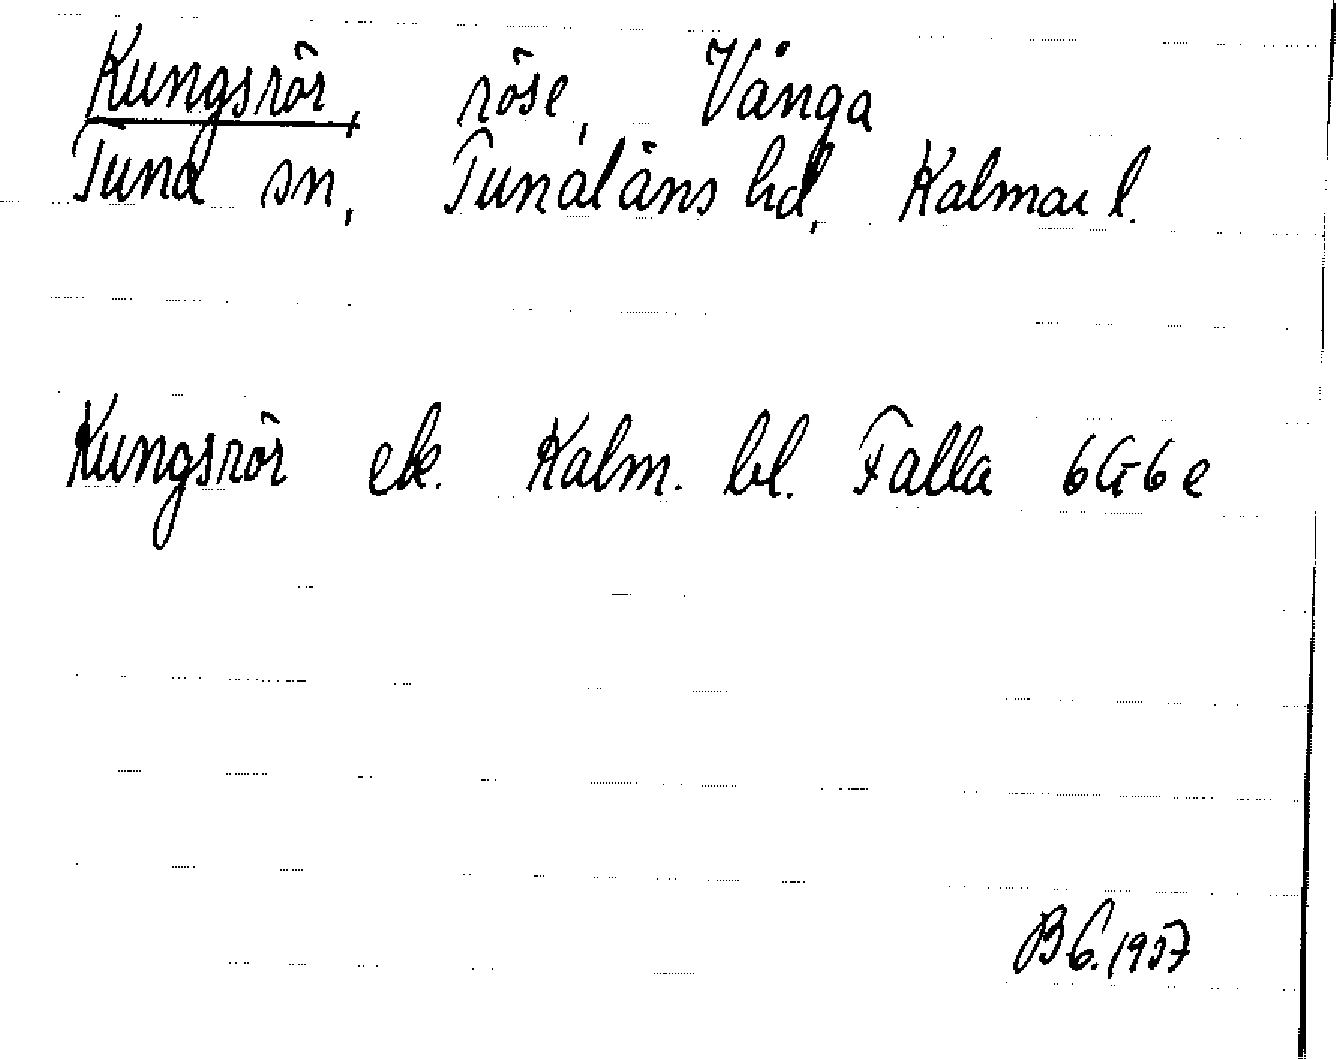 Kungsrör, röse, Vånga
Tuna sn, Tunaläns hd, Kalmar l.
Kungsrör ek. Kalm. bl. Falla 6G6e
1957